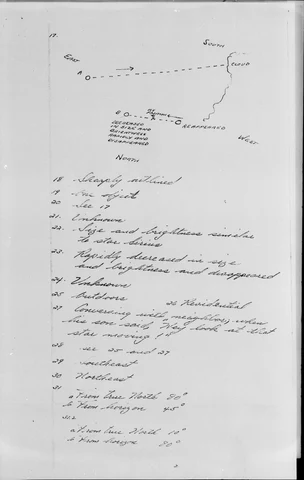 17.
SOUTH
EAST
CLOUD
A
B
C
REAPPEARED
DECREASED
IN SIZE AND
BRIGHTNESS
RAPIDLY AND
DISAPPEARED
WEST
NORTH
18 Sharply outlined
19 One object
20 See 17
21. Unknown
22. Size and brightness similar
to star Sirius
23. Rapidly decreased in size
and brightness and disappeared
24. Unknown
25 Outdoors 26 Residential
27 Conversing with neighbor, when
his son said, "Hey look at that
star moving!"
28 see 25 and 27
29 southeast
30 Northeast
31
a From true North 80°
b From horizon 45°
31.2
a From true North 10°
b From horizon 80°